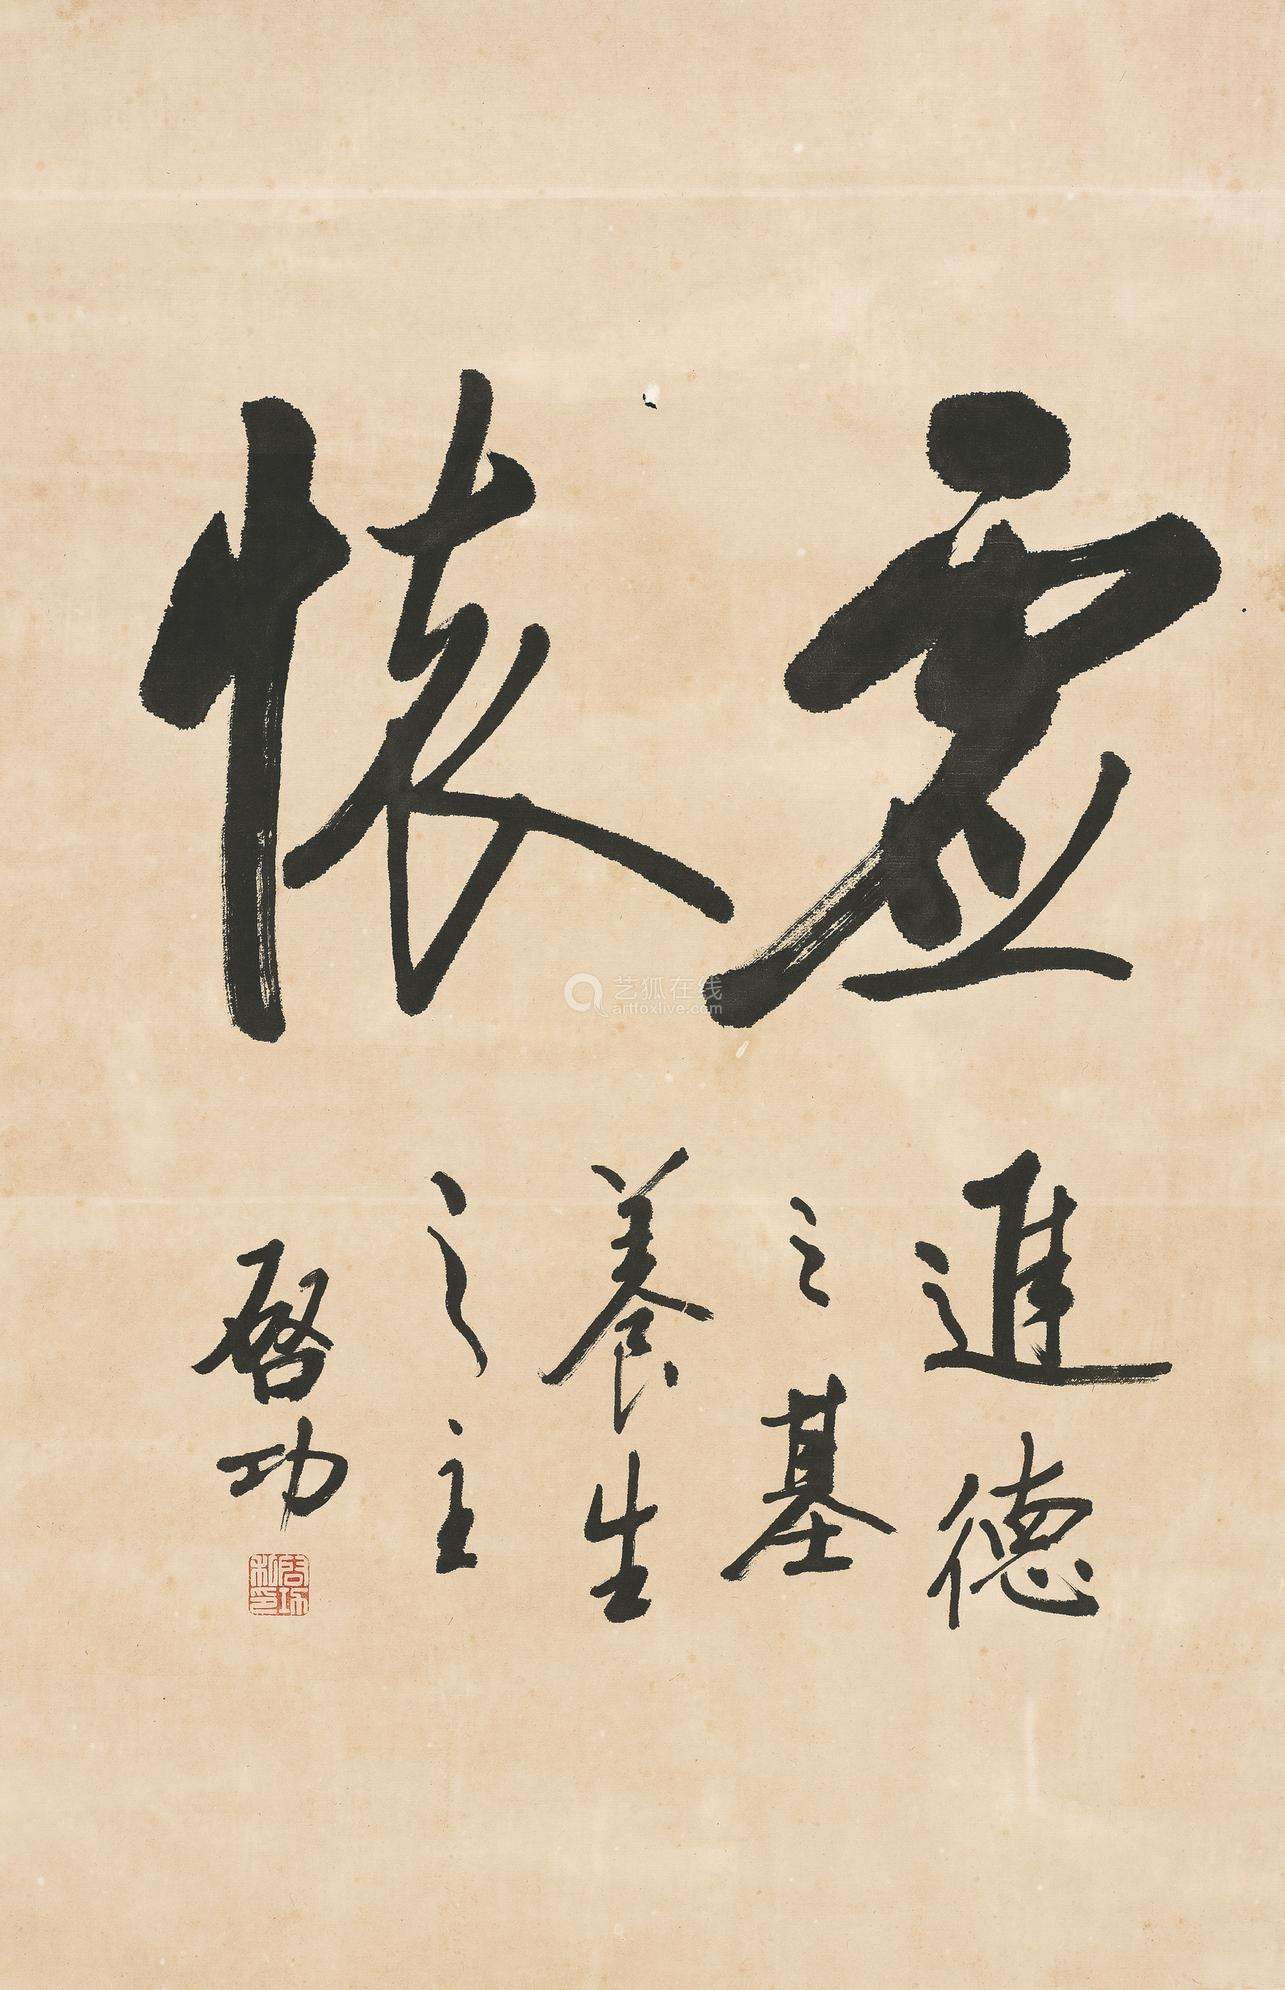 虚懷
進德
之基
養生
之主
啓功
艺狐在线
artfoxlive.com